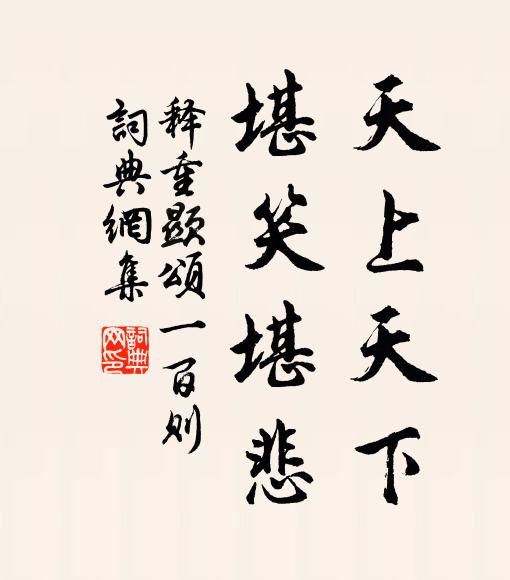 天上天下
堪笑堪悲
释重顯頌一百则
詞典網集
詞典網印